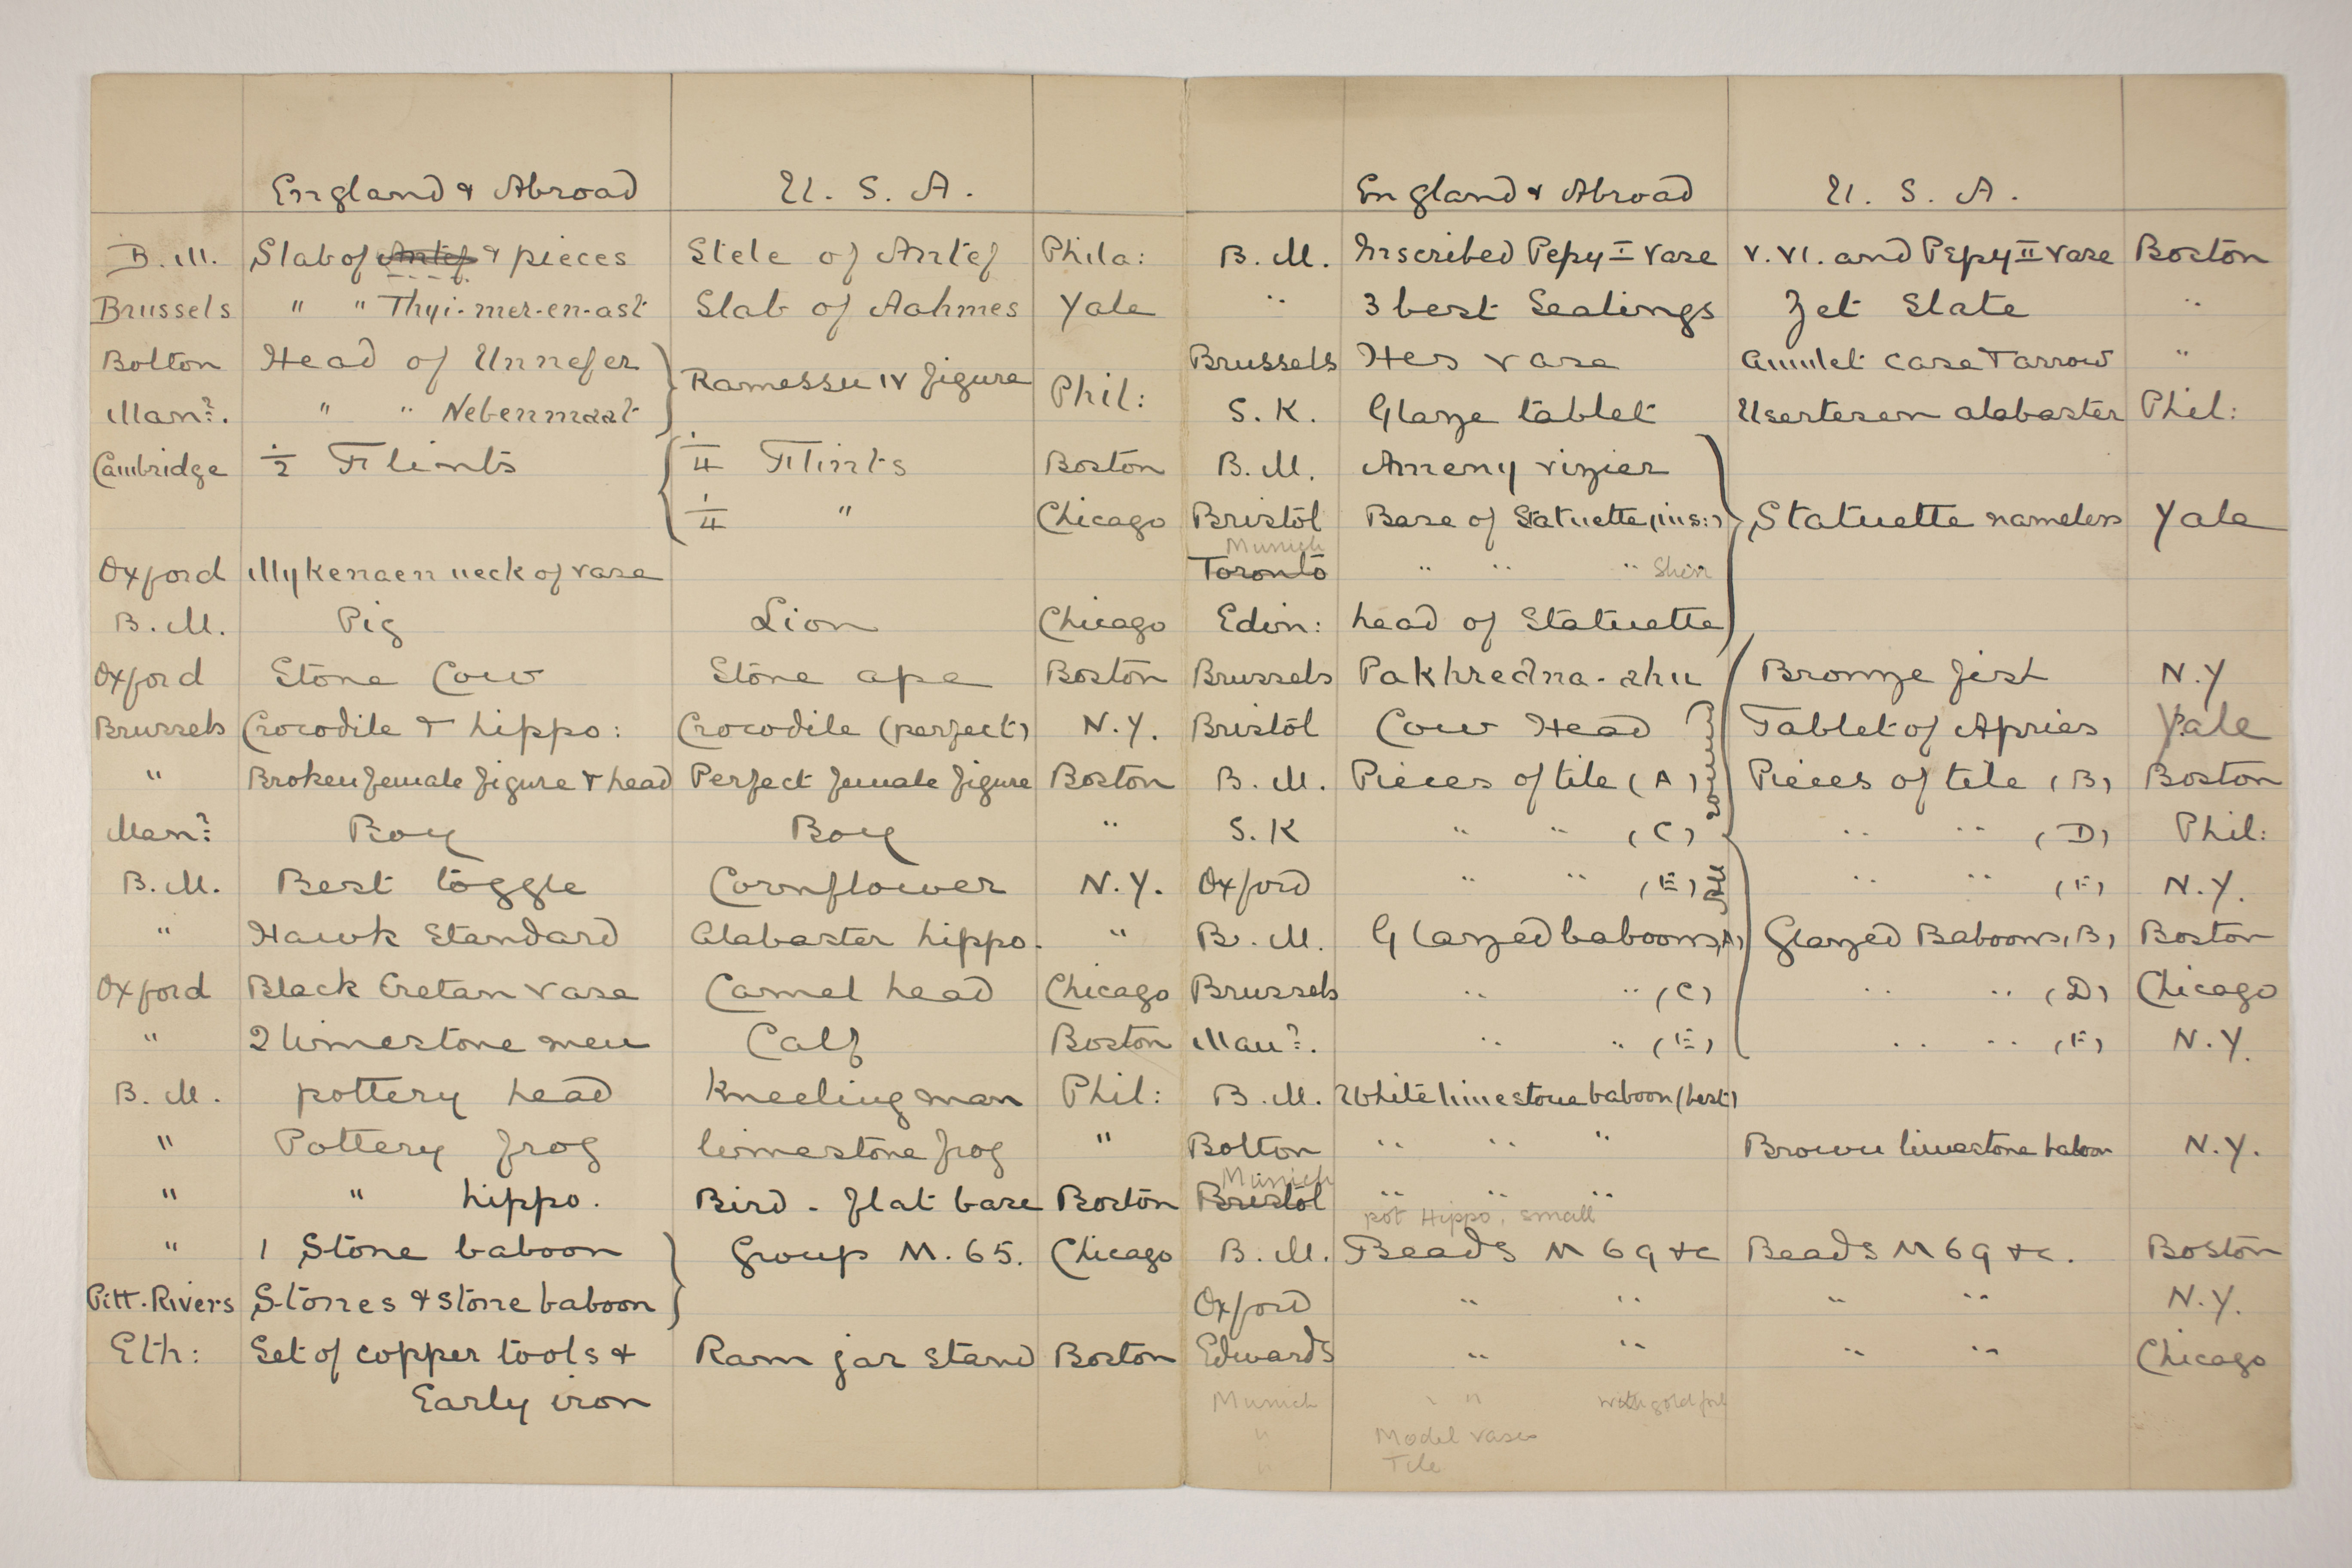 England & Abroad U. S. A.
B. M. Slab of Antef & pieces Stele of Antef Phila:
Brussels " " Thyi-mer-en-ast Slab of Aahmes Yale
Bolton Head of Unnefer
Ramessu IV figure Phil:
Man?. " " Nebenmaat
Cambridge ½ Flints ¼ Flints Boston
¼ " Chicago
Oxford Mykenaen neck of vase
B. M. Pig Lion Chicago
Oxford Stone Cow Stone ape Boston
Brussels Crocodile & hippo: Crocodile (perfect) N.Y.
" Broken female figure & head Perfect female figure Boston
Man? Boy Boy "
B. M. Best toggle Cornflower N.Y.
" Hawk Standard Alabaster hippo. "
Oxford Black Cretan vase Camel head Chicago
" 2 limestone men Calf Boston
B. M. pottery head Kneeling man Phil:
" Pottery frog limestone frog "
" " hippo. Bird - flat base Boston
" 1 Stone baboon Group M. 65. Chicago
Pitt-Rivers Stones & stone baboon
Eth: Set of copper tools & Ram jar stand Boston
Early iron
England & Abroad U. S. A.
B. M. Inscribed Pepy I vase V. VI. and Pepy II vase Boston
" 3 best Sealings Zet Slate "
Brussels Hes vase Amulet case & arrow "
S. K. Glaze tablet Usertesen alabaster Phil:
B. M. Ameny vizier
Bristol Base of Statuette (ins:) Statuette nameless Yale
Munich
Toronto " " "
Edin: head of Statuette
Brussels Pakhredna-ahu Bronze fist N.Y
Bristol Cow Head Tablet of Apries Yale
B. M. Pieces of tile (A) Pieces of tile (B) Boston
S. K " " (C) " " (D) Phil:
Oxford " " (E) " " (F) N.Y.
B. M. Glazed baboons (A) Glazed Baboons (B) Boston
Brussels " " (C) " " (D) Chicago
Man?. " " (E) " " (F) N.Y.
B. M. White limestone baboon (best)
Bolton " " " Brown limestone baboon N.Y.
Munich
Bristol " " "
pot Hippo, small
B. M. Beads M 69 &c Beads M 69 &c. Boston
Oxford " " " " N.Y.
Edwards " " " " Chicago
Munich " " with gold foil
" Model vases
" Tile